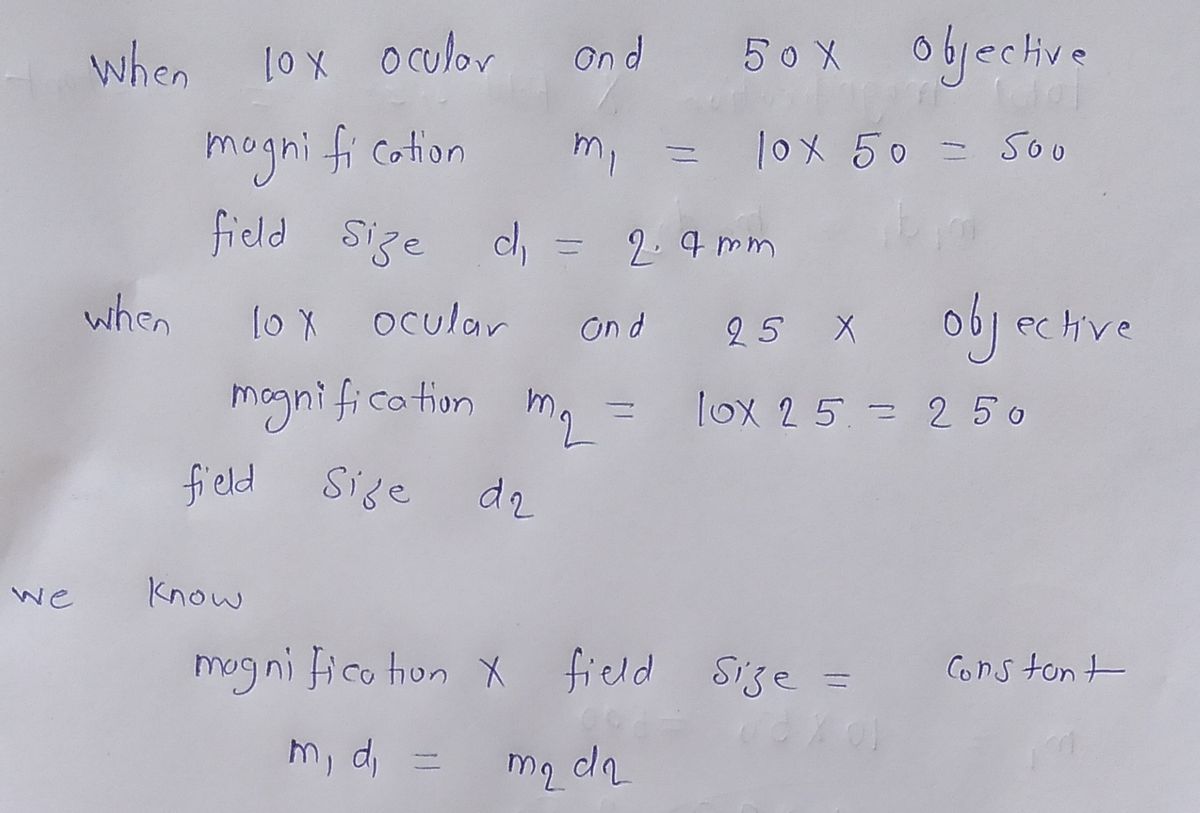 When 10X ocular and 50X objective
magnification m₁ = 10X 50 = 500
field size d₁ = 2.9 mm
when 10X ocular and 25 X objective
magnification m₂ = 10X 25 = 250
field size d₂
we know
magnification X field size = constant
m₁ d₁ = m₂ d₂